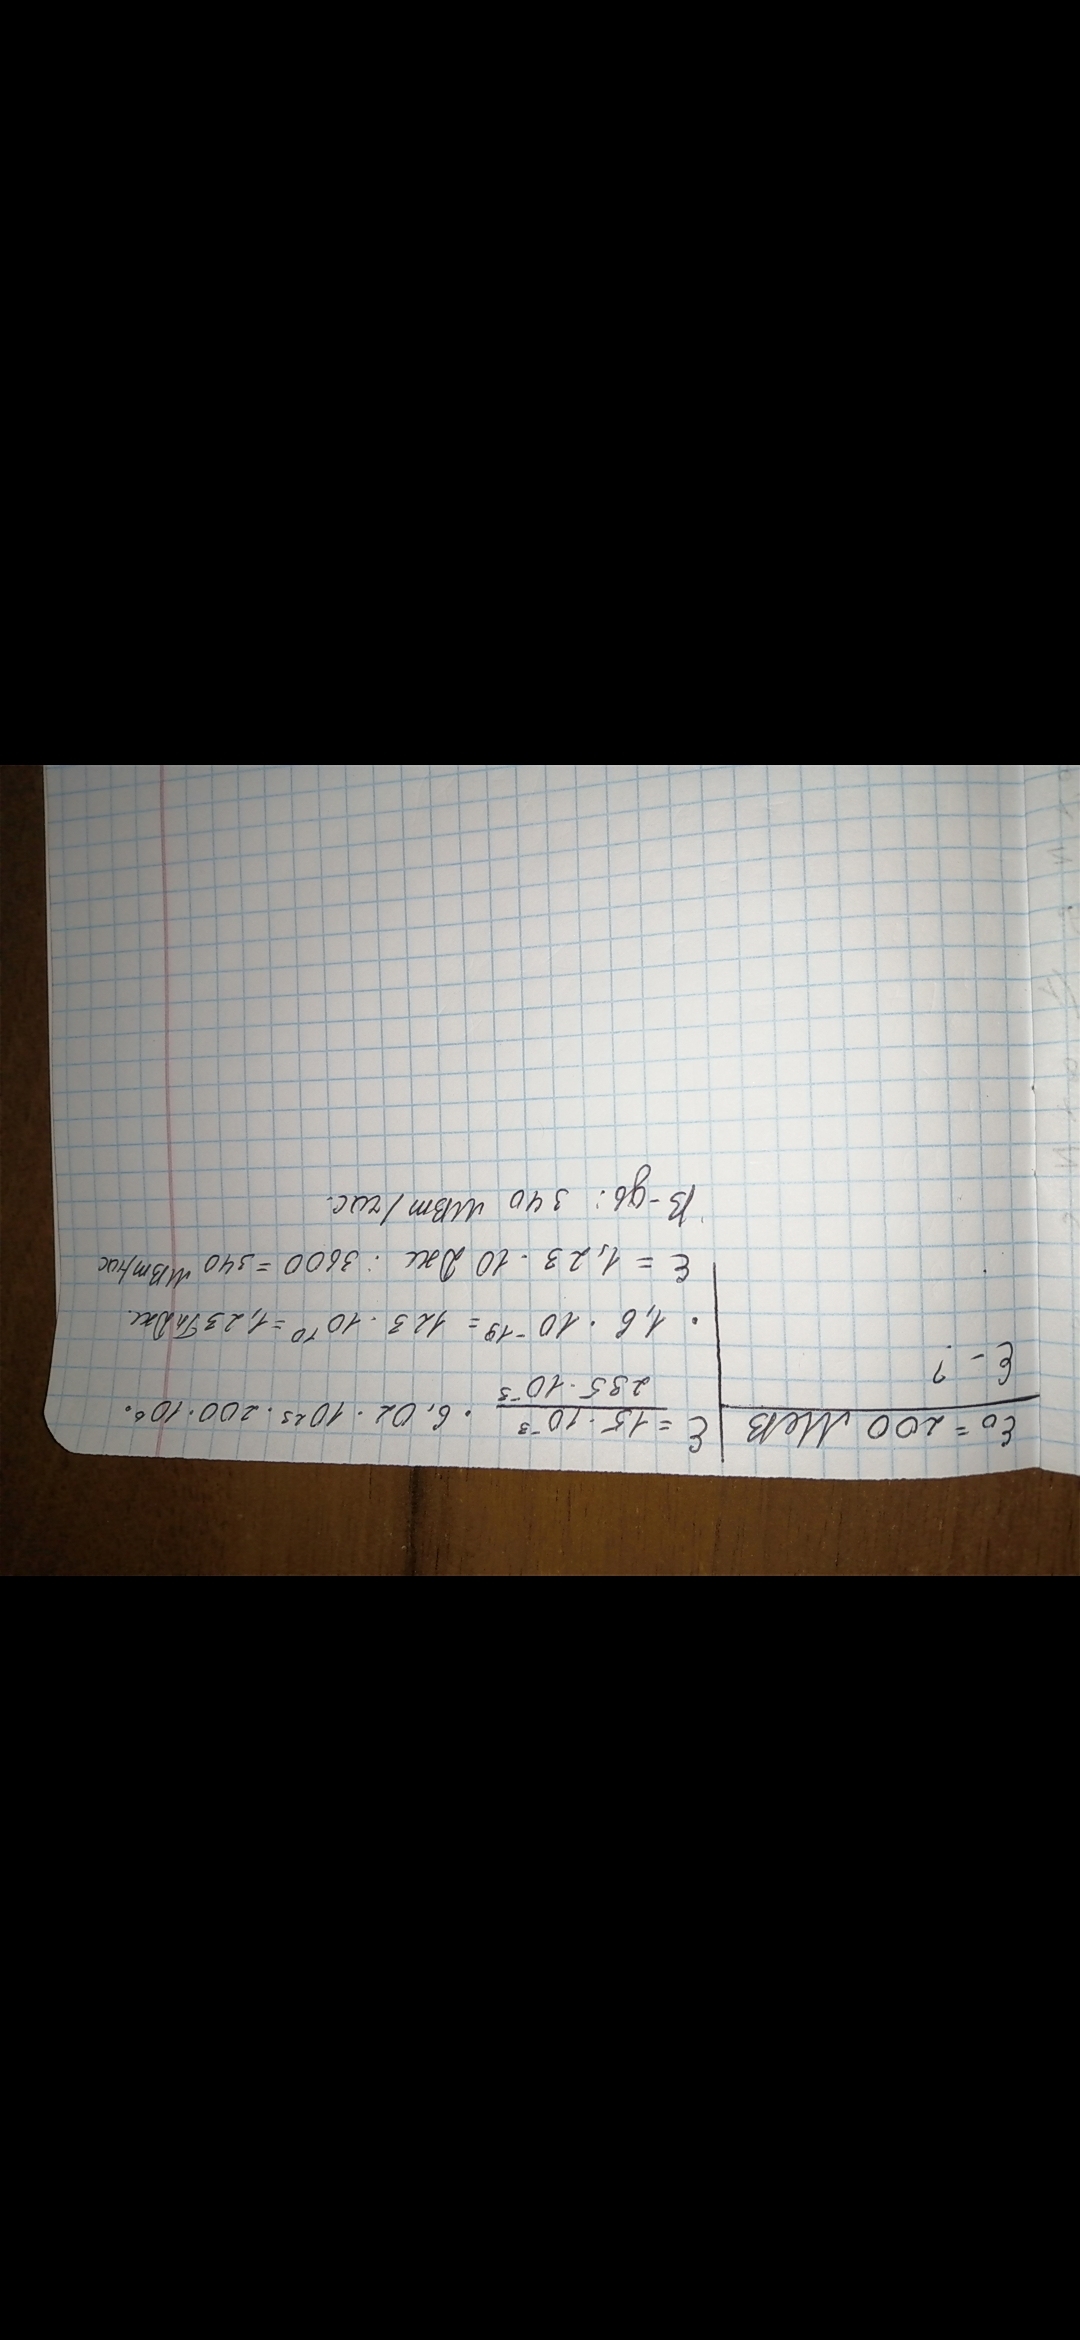 E₀ = 200 МеВ
E - ?
E = 15·10⁻³ / 235·10⁻³ · 6,02 · 10²³ · 200 · 10⁶ ·
· 1,6 · 10⁻¹⁹ = 123 · 10¹⁰ = 1,23 ТлДж.
E = 1,23 · 10 Дж : 3600 = 340 МВт/час
В-дь: 340 МВт/час.